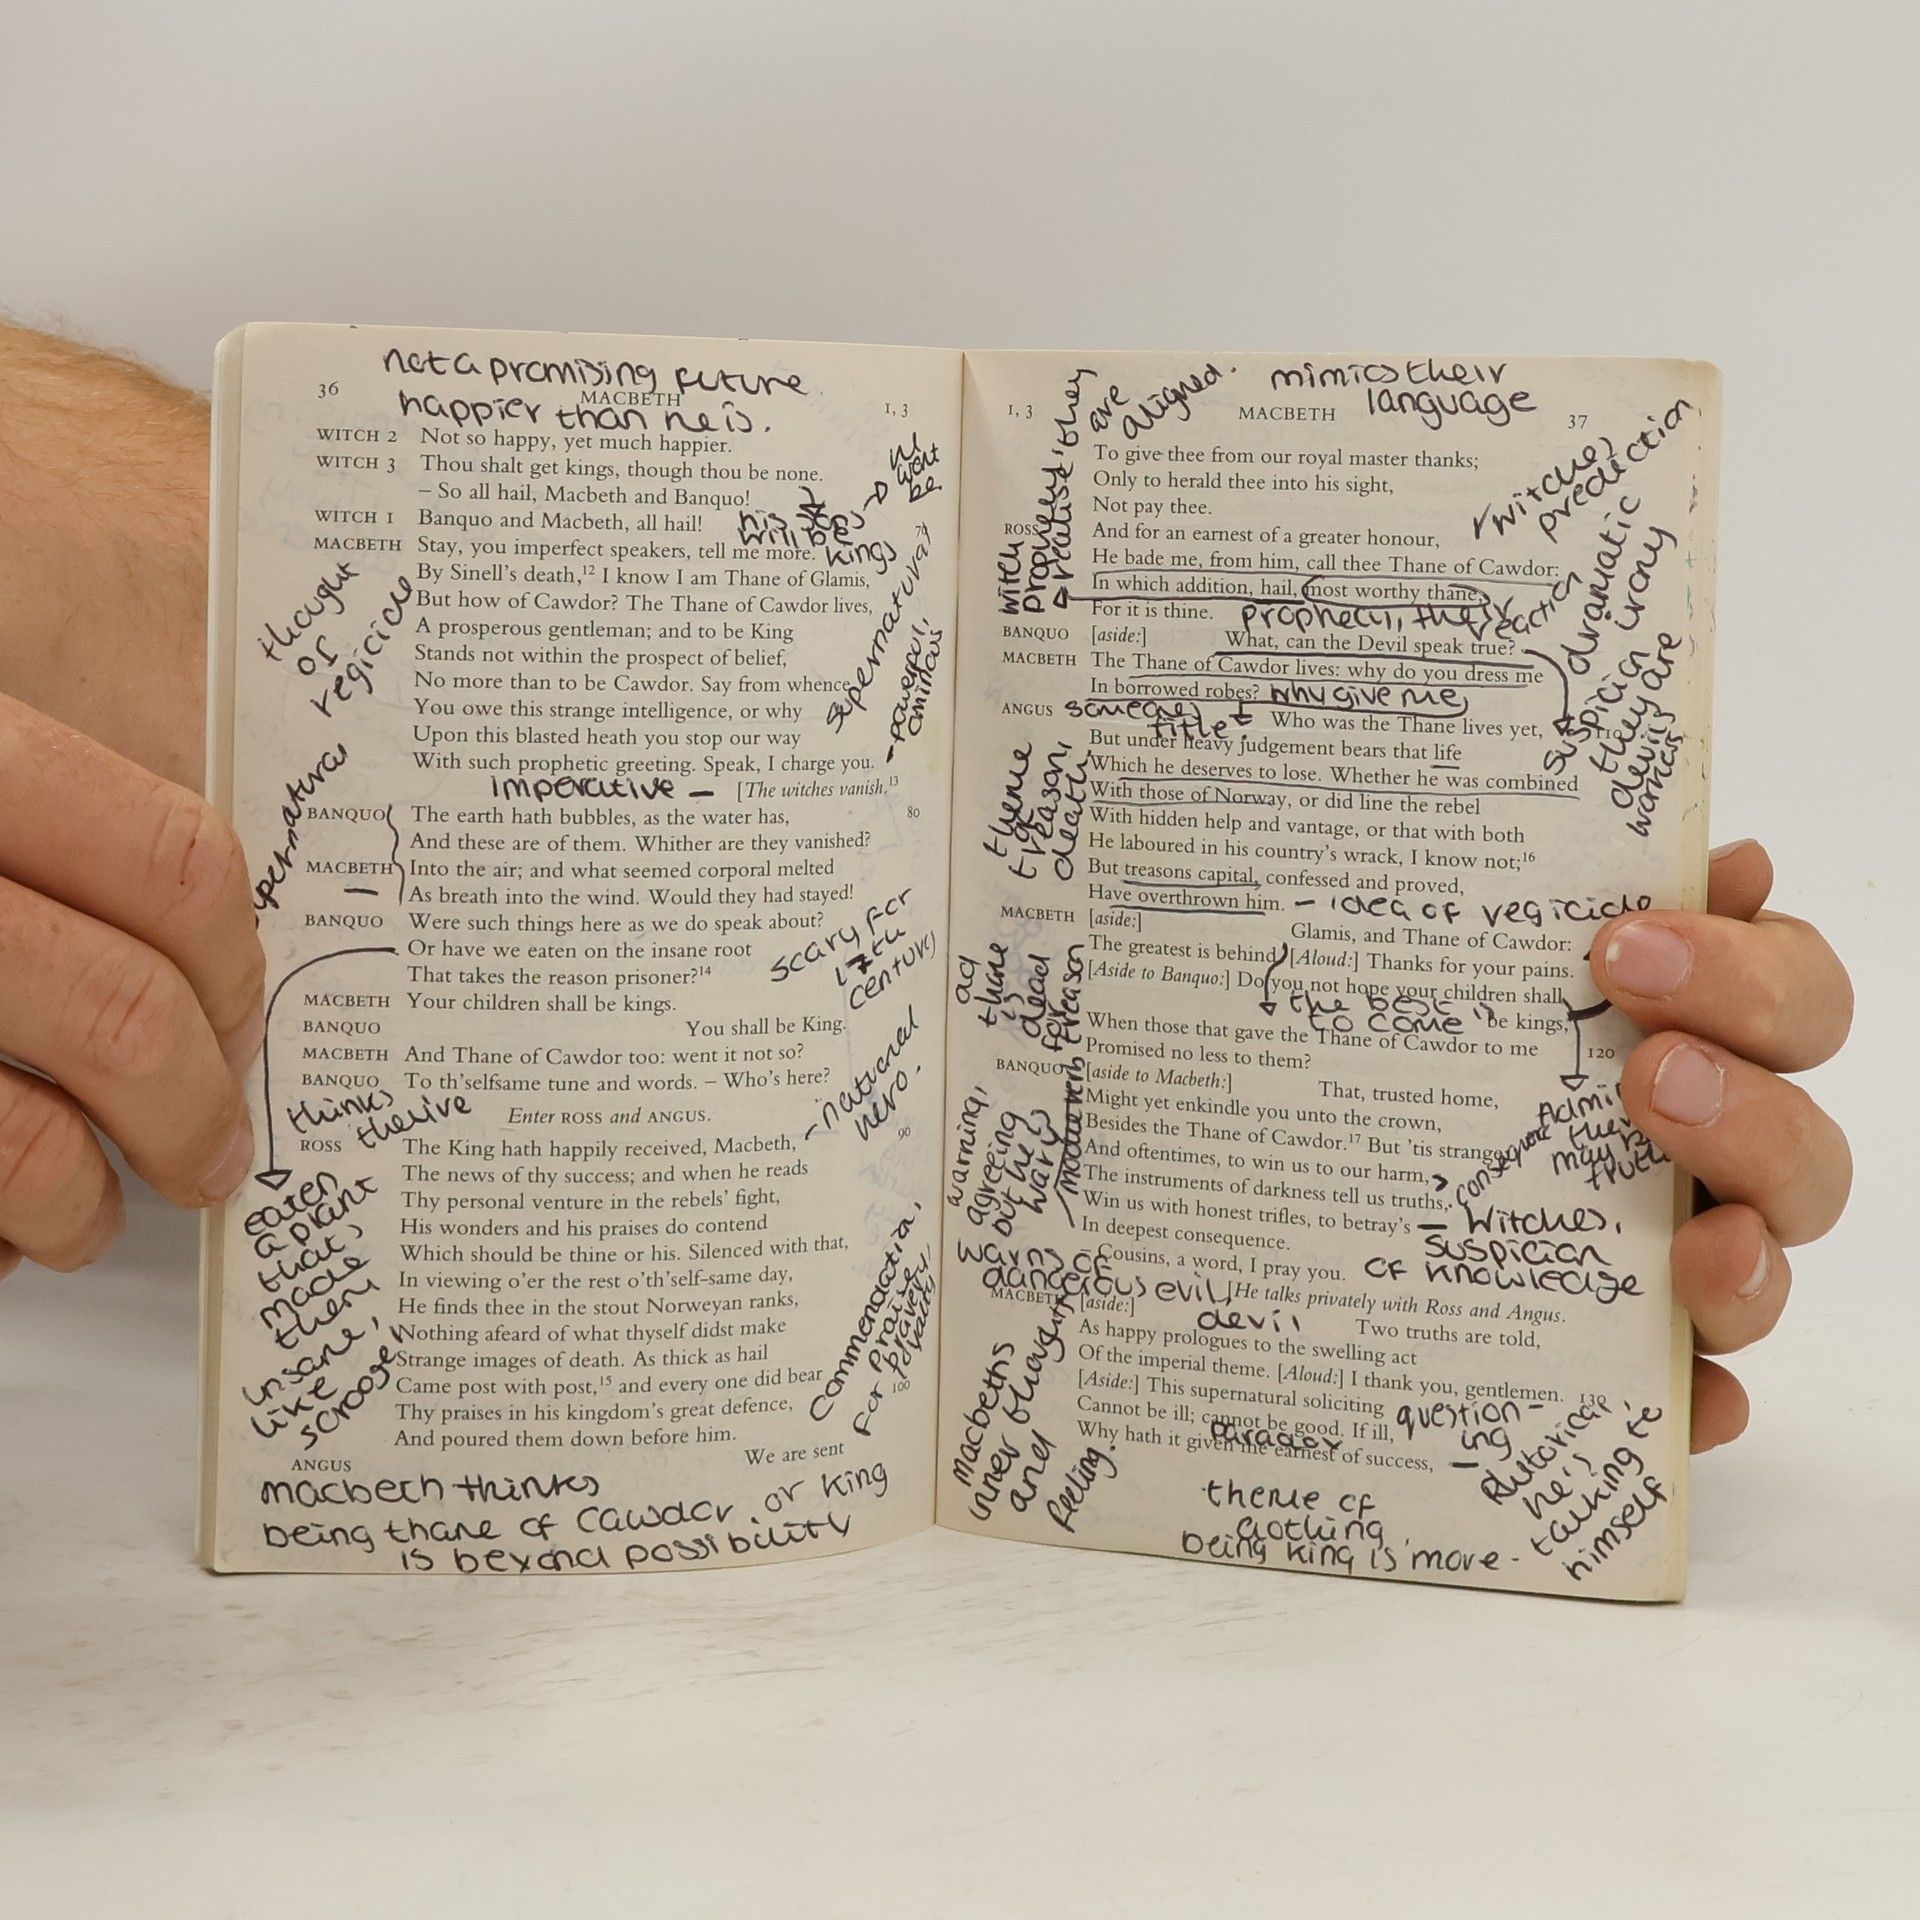 not a promising future
36
MACBETH
1, 3
happier than he is.
WITCH 2 Not so happy, yet much happier.
WITCH 3 Thou shalt get kings, though thou be none.
– So all hail, Macbeth and Banquo!
WITCH 1 Banquo and Macbeth, all hail!
his
will be
kings
MACBETH Stay, you imperfect speakers, tell me more.
By Sinell's death,12 I know I am Thane of Glamis,
But how of Cawdor? The Thane of Cawdor lives,
A prosperous gentleman; and to be King
Stands not within the prospect of belief,
No more than to be Cawdor. Say from whence
You owe this strange intelligence, or why
Upon this blasted heath you stop our way
With such prophetic greeting. Speak, I charge you.
thought
of
regicide
supernatural
Imperative – [The witches vanish.13
BANQUO The earth hath bubbles, as the water has, 80
And these are of them. Whither are they vanished?
MACBETH Into the air; and what seemed corporal melted
As breath into the wind. Would they had stayed!
BANQUO Were such things here as we do speak about?
Or have we eaten on the insane root
That takes the reason prisoner?14
scary for
17th
century
MACBETH Your children shall be kings.
BANQUO You shall be King.
MACBETH And Thane of Cawdor too: went it not so?
BANQUO To th'selfsame tune and words. – Who's here?
thinks
Enter ROSS and ANGUS.
hero.
90
ROSS The King hath happily received, Macbeth,
The news of thy success; and when he reads
Thy personal venture in the rebels' fight,
His wonders and his praises do contend
Which should be thine or his. Silenced with that,
In viewing o'er the rest o'th'self-same day,
He finds thee in the stout Norweyan ranks,
Nothing afeard of what thyself didst make
Strange images of death. As thick as hail
Came post with post,15 and every one did bear 100
Thy praises in his kingdom's great defence,
And poured them down before him.
eaten
a plant
that
made
them
insane,
like
scrooge
commendation,
for
praise
bravery
ANGUS We are sent
macbeth thinks
being thane of cawdor. or king
is beyond possibility
mimics their
language
1, 3
MACBETH
37
are
aligned.
To give thee from our royal master thanks;
Only to herald thee into his sight,
Not pay thee.
ROSS And for an earnest of a greater honour,
He bade me, from him, call thee Thane of Cawdor:
In which addition, hail, most worthy thane,
For it is thine.
BANQUO [aside:] What, can the Devil speak true?
MACBETH The Thane of Cawdor lives: why do you dress me
In borrowed robes? why give me
title
witches
prediction
dramatic
irony
suspicion
they are
devils
ANGUS Who was the Thane lives yet,
But under heavy judgement bears that life
Which he deserves to lose. Whether he was combined
With those of Norway, or did line the rebel
With hidden help and vantage, or that with both
He laboured in his country's wrack, I know not;16
But treasons capital, confessed and proved,
Have overthrown him. – idea of regicide
theme
of
treason,
death,
MACBETH [aside:] Glamis, and Thane of Cawdor:
The greatest is behind. [Aloud:] Thanks for your pains.
[Aside to Banquo:] Do you not hope your children shall be kings,
the best
to come
When those that gave the Thane of Cawdor to me
Promised no less to them? 120
thane
is
dead
for
treason
BANQUO [aside to Macbeth:] That, trusted home,
Might yet enkindle you unto the crown,
Besides the Thane of Cawdor.17 But 'tis strange
And oftentimes, to win us to our harm,
The instruments of darkness tell us truths,
Win us with honest trifles, to betray's
In deepest consequence.
– Cousins, a word, I pray you.
warning,
agreeing
but he's
wary
witches,
suspicion
of knowledge
evil
devil
[He talks privately with Ross and Angus.
MACBETH [aside:] Two truths are told,
As happy prologues to the swelling act
Of the imperial theme. [Aloud:] I thank you, gentlemen. 130
[Aside:] This supernatural soliciting
Cannot be ill; cannot be good. If ill,
Why hath it given me earnest of success,
Paradox
question-
ing
Rhetorical,
he's
talking to
himself
macbeths
inner thoughts
and
feeling.
theme of
clothing
being king is more -